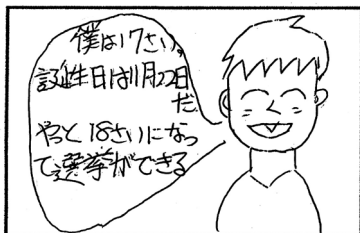 僕は17さい。
誕生日は11月22日
だ
やっと18さいになっ
て選挙ができる